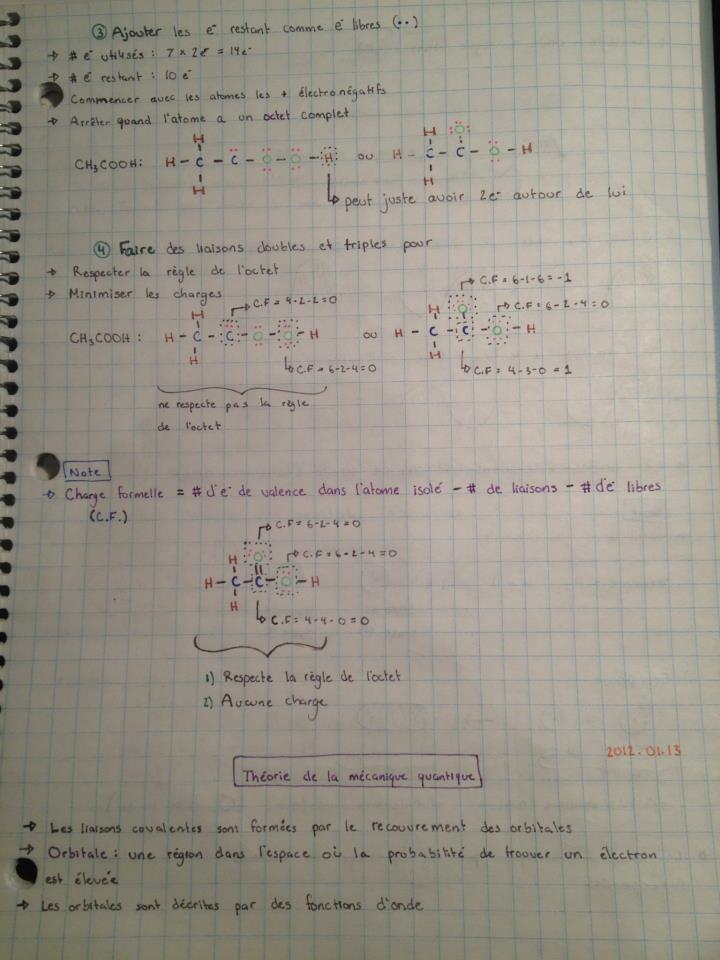 ③ Ajouter les e⁻ restant comme e⁻ libres (••)
→ # e⁻ utilisés : 7 × 2e⁻ = 14e⁻
→ # e⁻ restant : 10 e⁻
Commencer avec les atomes les + électronégatifs
→ Arrêter quand l'atome a un octet complet
H
O
H
CH₃COOH: H - C - C - O - O - H ou H - C - C - O - H
H
H
peut juste avoir 2e⁻ autour de lui
④ Faire des liaisons doubles et triples pour
→ Respecter la règle de l'octet
→ Minimiser les charges
C.F = 6-1-6 = -1
C.F = 4-2-2=0
C.F = 6-2-4 = 0
H
H
O
CH₃COOH : H - C - C - O - O - H ou H - C - C - O - H
H
H
C.F = 6-2-4=0
C.F = 4-3-0 = 1
ne respecte pas la règle
de l'octet
Note
→ Charge formelle = # d'e⁻ de valence dans l'atome isolé - # de liaisons - # d'e⁻ libres
(C.F.)
C.F = 6-2-4 = 0
H
O
C.F = 6-2-4=0
H - C - C - O - H
H
C.F = 4-4-0 = 0
1) Respecte la règle de l'octet
2) Aucune charge
2012.01.13
Théorie de la mécanique quantique
→ Les liaisons covalentes sont formées par le recouvrement des orbitales
→ Orbitale : une région dans l'espace où la probabilité de trouver un électron
est élevée
→ Les orbitales sont décrites par des fonctions d'onde